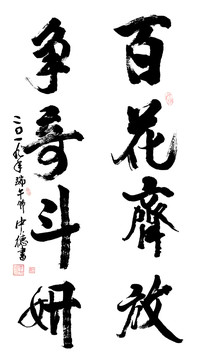 百花齊放
争奇斗妍
二〇一九年端午节中德書